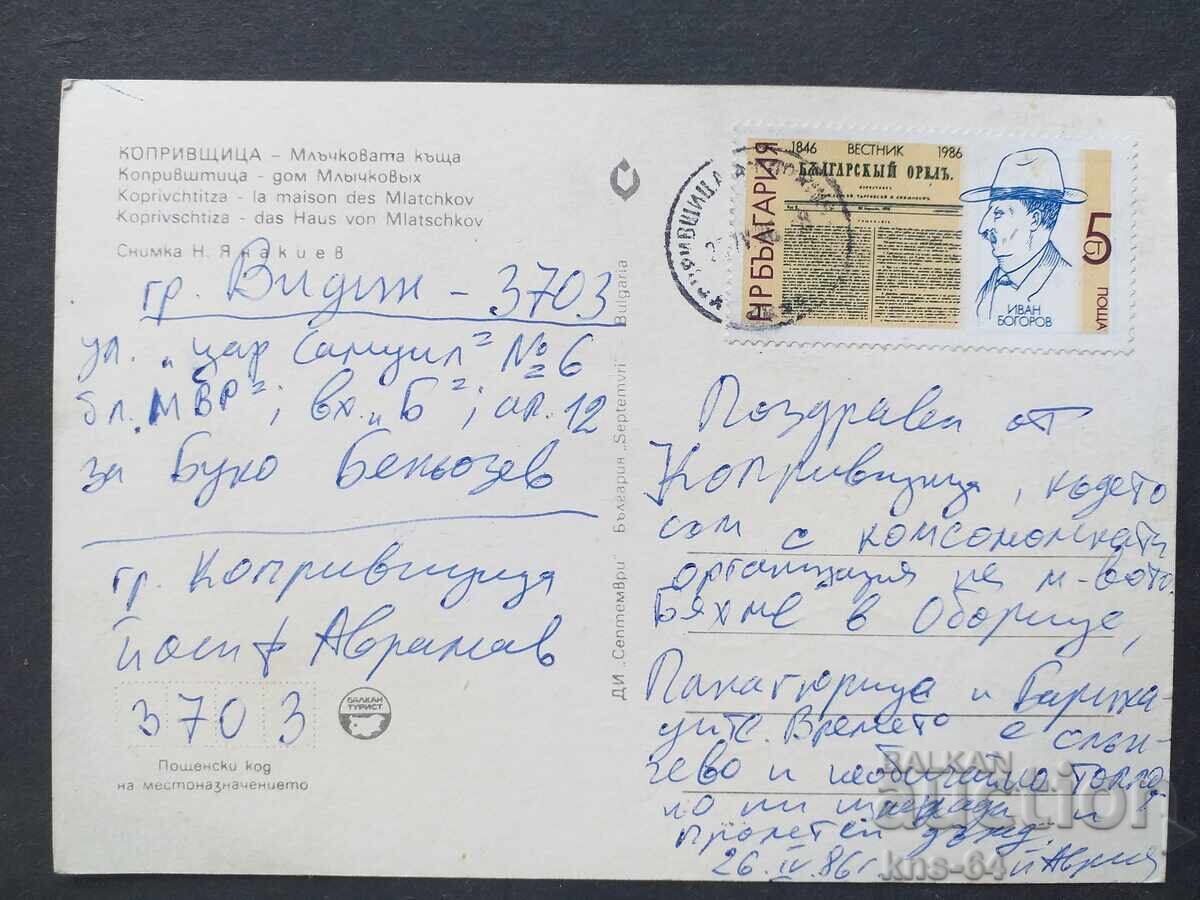 КОПРИВЩИЦА – Млъчковата къща
Копривштица - дом Млычковых
Koprivchtitza - la maison des Mlatchkov
Koprivschtiza - das Haus von Mlatschkov
Снимка Н. Янакиев
гр. Видин - 3703
ул. „Цар Самуил" № 6
бл. МВР", вх. „Б"; ап. 12
за Буко Беньозев
гр. Копривщица
Йосиф Аврамов
3703
Пощенски код
на местоназначението
БАЛКАН
ТУРИСТ
ДИ „Септември" България „Septemvri" - Bulgaria
КОПРИВЩИЦА
НР БЪЛГАРИЯ
1846 ВЕСТНИК 1986
БЪЛГАРСКЫЙ ОРЕЛЪ.
ИВАН
БОГОРОВ
5 СТ
ПОЩА
Поздрави от
Копривщица, където
съм с комсомолската
организация на м-вото.
Бяхме в Оборище,
Панагюрище и Барика-
дите. Времето е слън-
чево и необичайно топло,
пролетен дъжд.
26.IV.86 г.
BALKAN
auction
kns-64